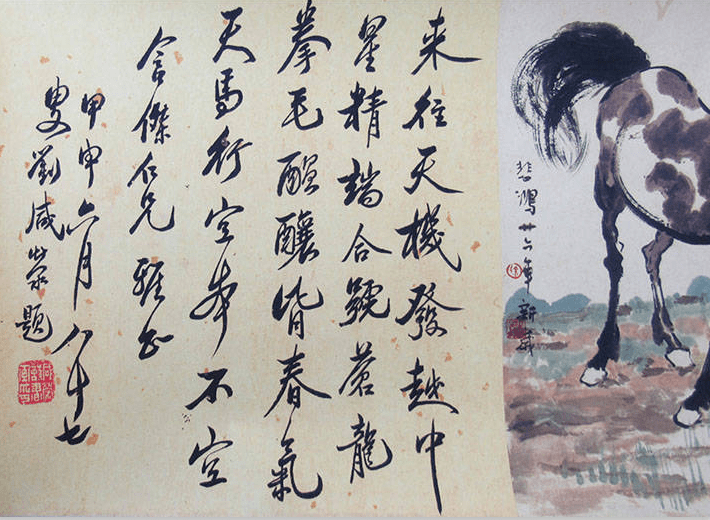 悲鴻廿六年新歲
來往天機發越中
星精端合號蒼龍
拳毛醞釀皆春氣
天馬行空本不空
含傑仁兄雅正
甲申六月八十七
叟劉咸滎題